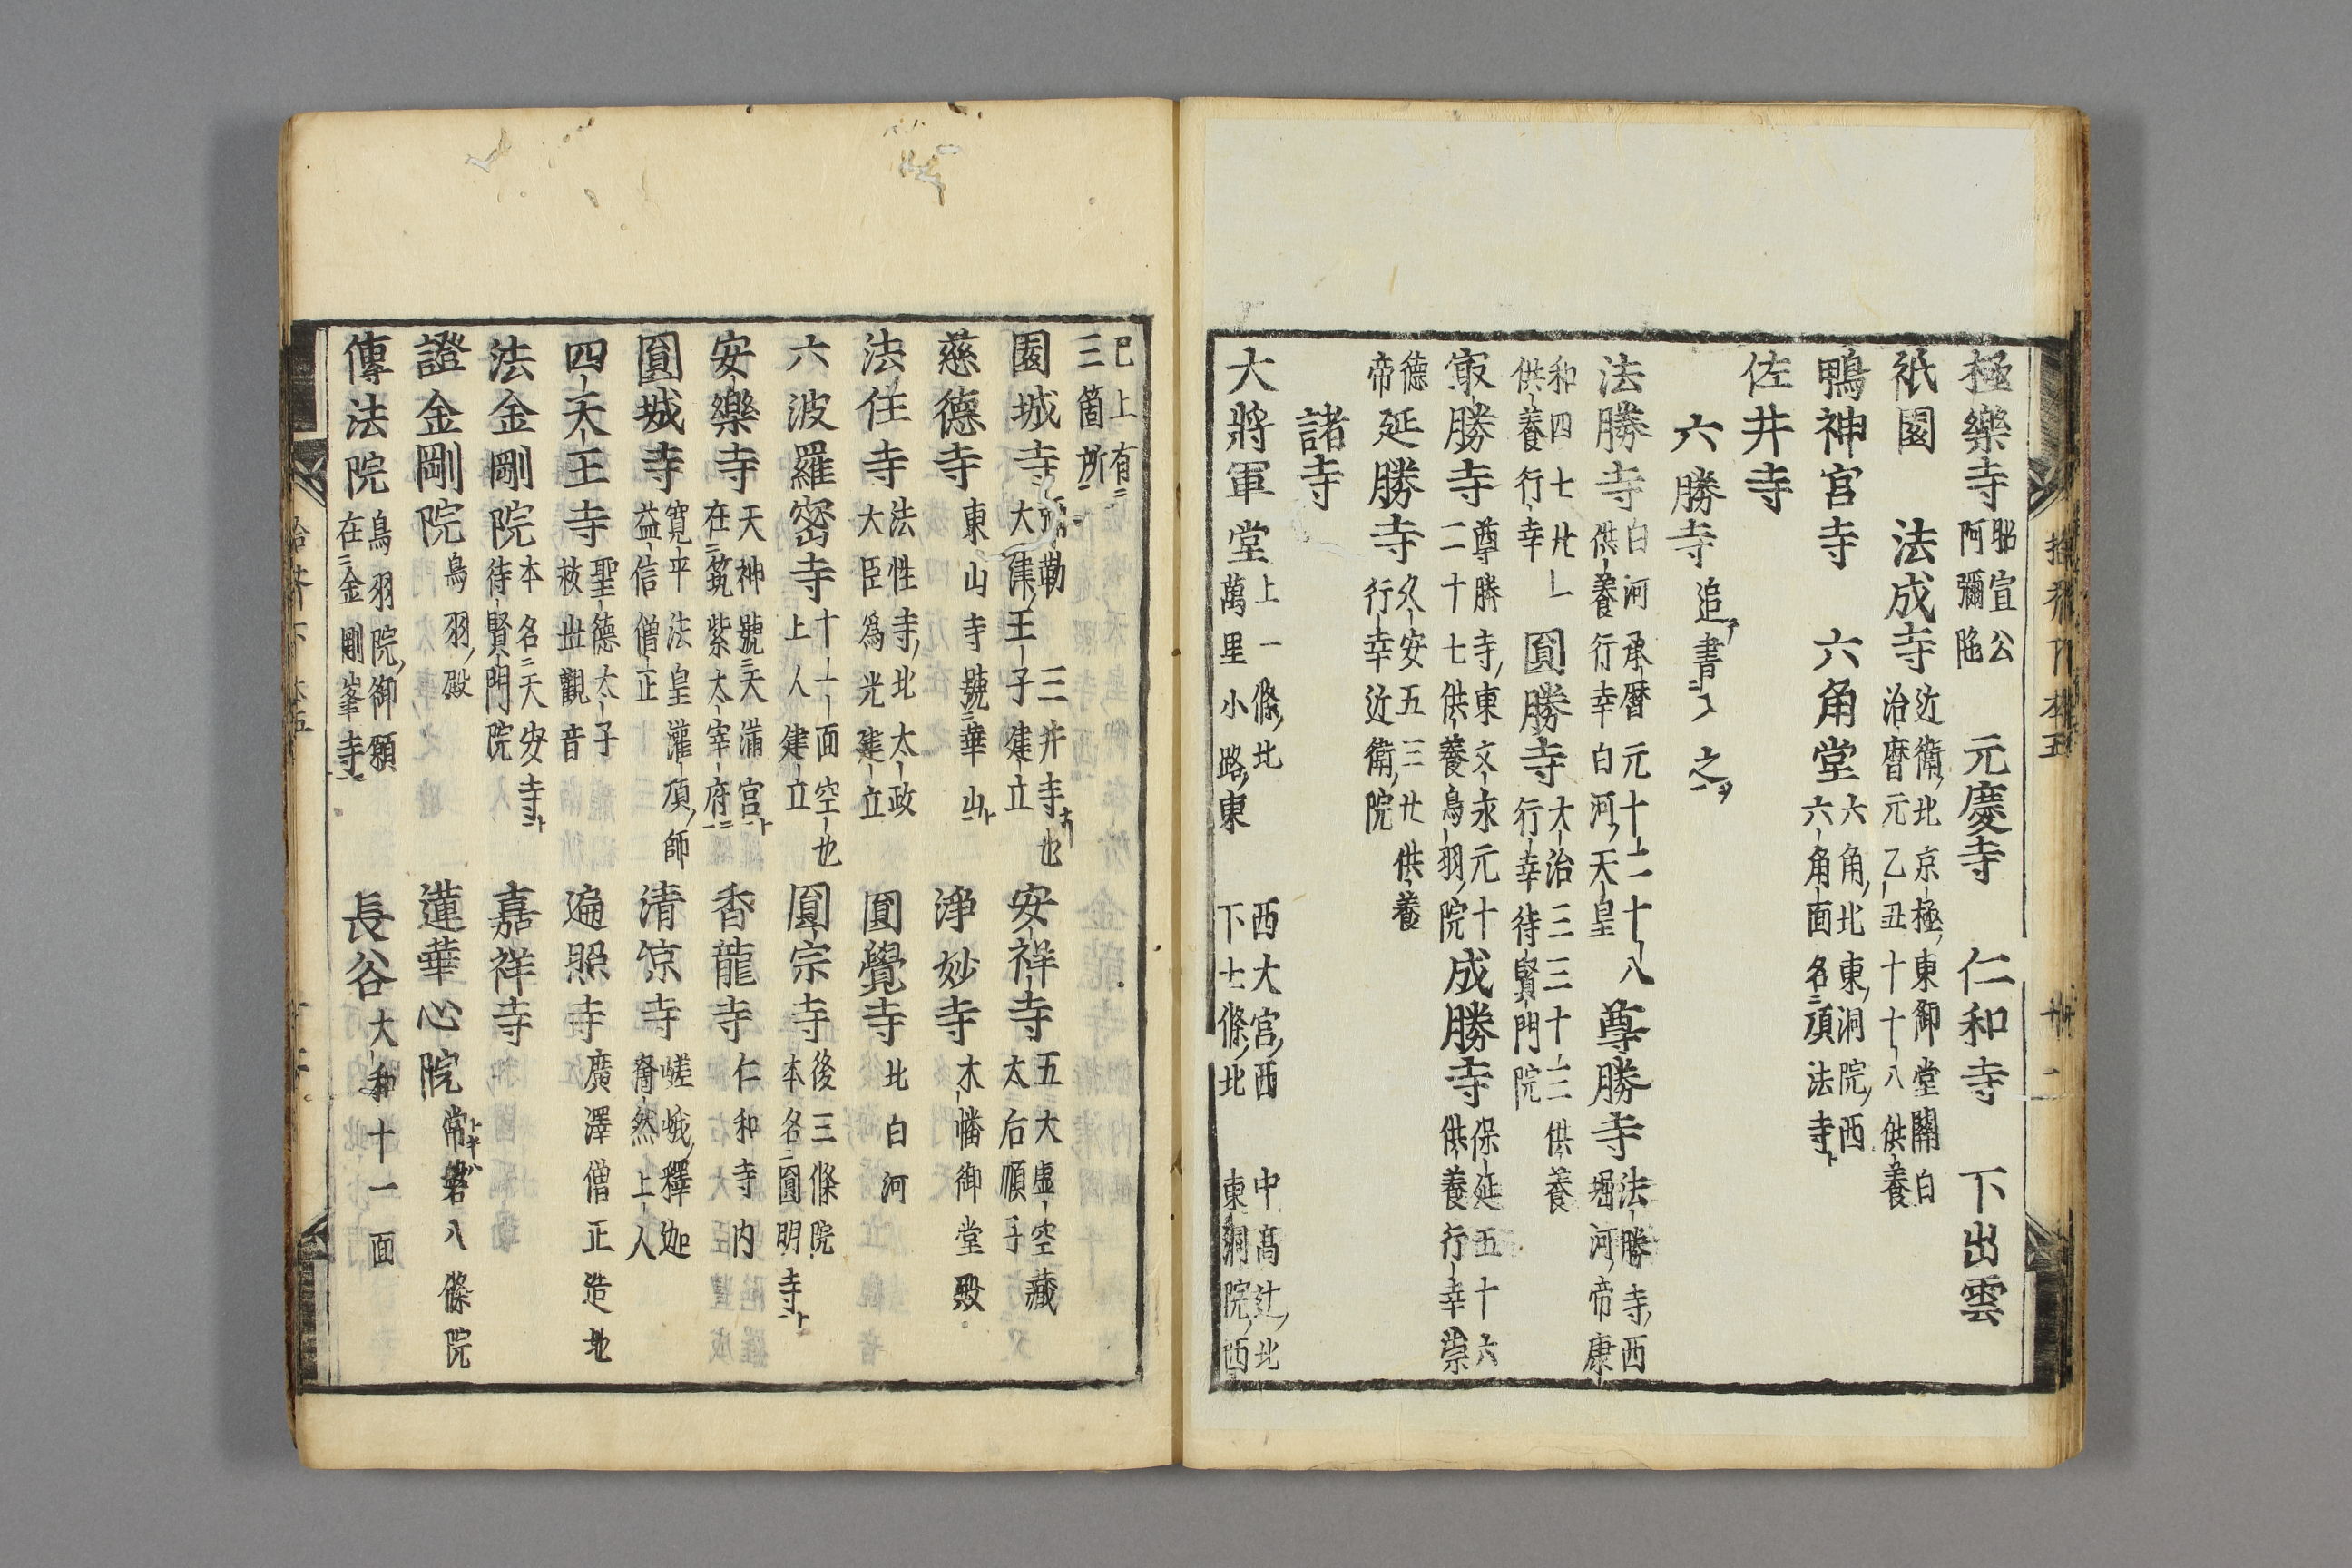 極樂寺 昭宣公 阿彌陁 元慶寺 仁和寺 下出雲
祇園 法成寺 近衛北京極東御堂關白 治暦元乙丑十十八供養
鴨神宮寺 六角堂 六角北東洞院西 六角面名頂法寺
佐井寺
六勝寺 追書入之
法勝寺 白河承暦元十二十八 供養行幸白河天皇 尊勝寺 法勝寺西 堀河帝康
和四七廿一 供養行幸 圓勝寺 大治三三十三供養 行幸待賢門院
冣勝寺 尊勝寺東文永元十 二十七供養鳥羽院 成勝寺 保延五十六 供養行幸崇
德帝 延勝寺 久安五三廿供養 行幸近衛院
諸寺
大將軍堂 上一條北 萬里小路東 西大宮西 下七條北 中髙辻北 東洞院西
巳上有三箇所
園城寺 弥勒 三井寺也 大集王子建立 安祥寺 五大虚空藏 太后順子
慈德寺 東山寺號華山 淨妙寺 木幡御堂殿
法住寺 法性寺北太政大臣爲光建立 圓覺寺 北白河
六波羅密寺 十一面空也上人建立 圓宗寺 後三條院 本名圓明寺
安樂寺 天神號天滿宮 在筑紫太宰府 香龍寺 仁和寺内
圓城寺 寛平法皇灌頂師 益信僧正 清凉寺 嵯峨釋迦 奝然上人
四天王寺 聖德太子 救世觀音 遍照寺 廣澤僧正造地
法金剛院 本名天安寺 待賢門院 嘉祥寺
證金剛院 鳥羽殿 蓮華心院 常磐八條院
傳法院 鳥羽院御願 在金剛峯寺 長谷 大和十一面